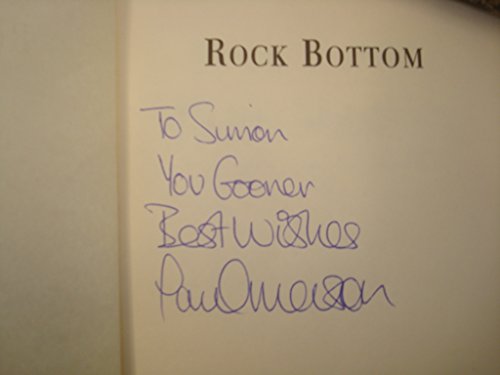 ROCK BOTTOM
To Simon
You Gooner
Best Wishes
Paul Merson